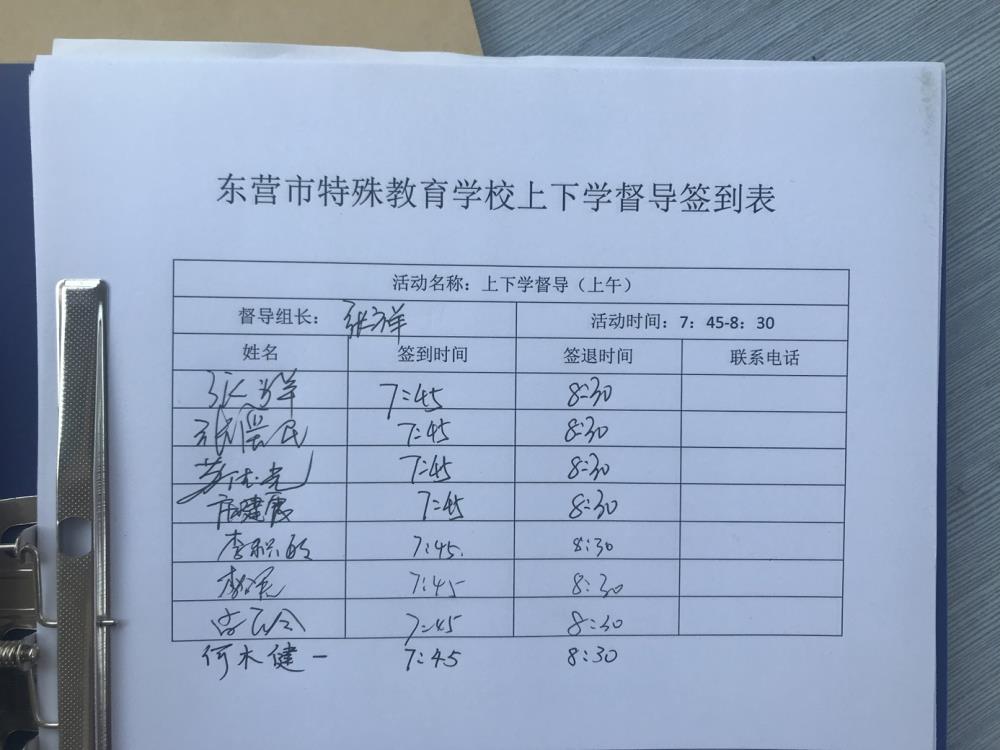 东营市特殊教育学校上下学督导签到表
活动名称：上下学督导（上午）
督导组长： 活动时间：7：45-8：30
姓名 签到时间 签退时间 联系电话
7:45 8:30
7:45 8:30
7:45 8:30
7:45 8:30
7:45. 8:30
7:45 8:30
7:45 8:30
何木健一 7:45 8:30